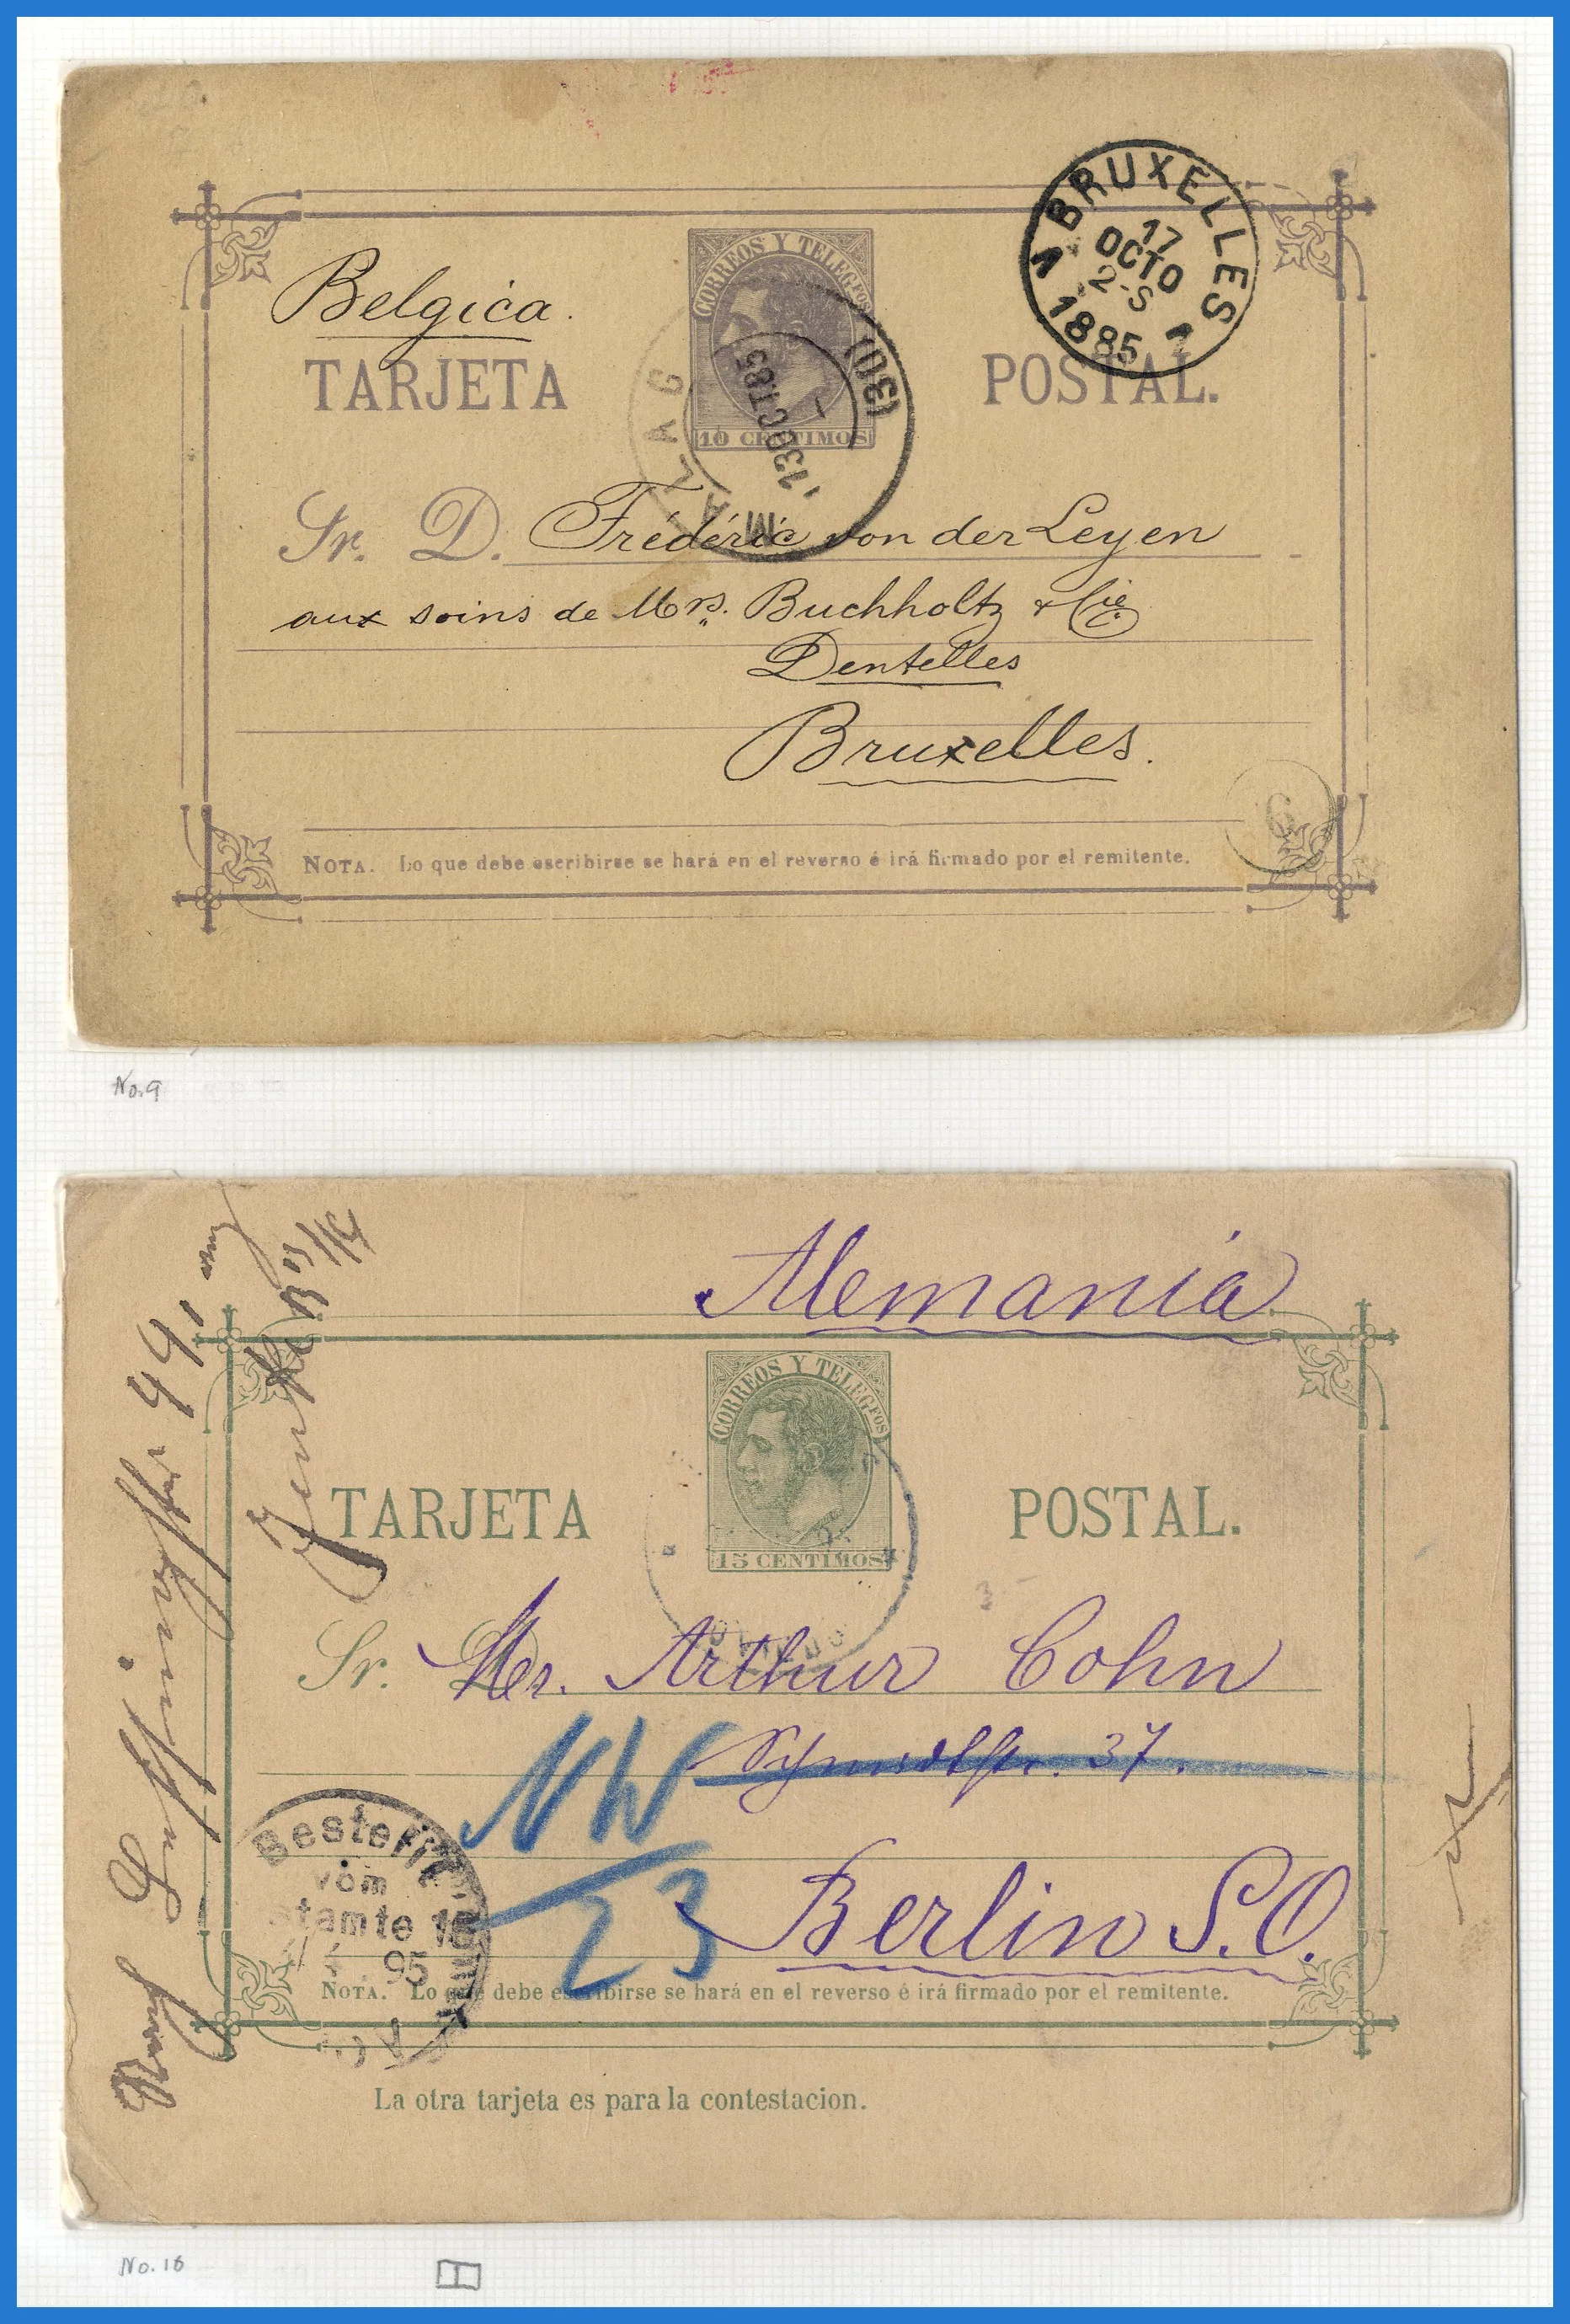 BRUXELLES
17
OCTO
2-S
1 1885 1
Belgica.
CORREOS Y TELEGFOS
TARJETA POSTAL.
10 CENTIMOS
MALAG (130)
13 OCT 85
Sr. D. Frédéric von der Leyen
aux soins de Mrs. Buchholtz & Cie.
Dentelles
Bruxelles.
6
NOTA. Lo que debe escribirse se hará en el reverso é irá firmado por el remitente.
No. 9
Alemania
CORREOS Y TELEGFOS
TARJETA POSTAL.
15 CENTIMOS
Sr. D. Mr. Arthur Cohn
37.
NW
23
Berlin S.O.
Bestellt
vom
95
NOTA. Lo que debe escribirse se hará en el reverso é irá firmado por el remitente.
La otra tarjeta es para la contestacion.
No. 16